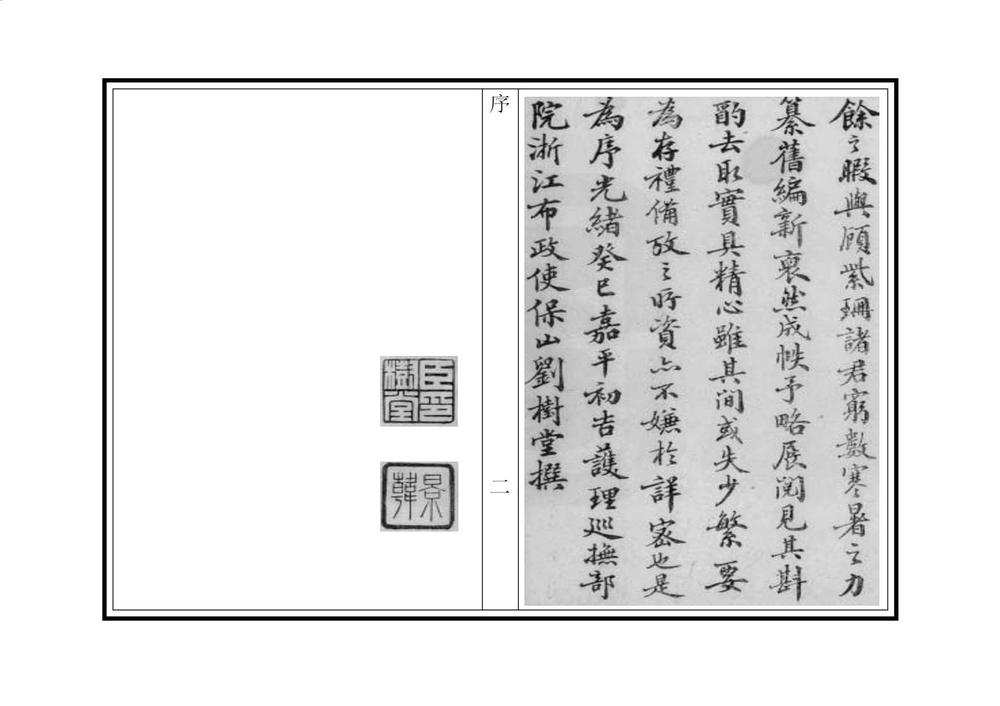 餘之暇與顧紫珊諸君窮數寒暑之力
纂舊編新裒然成帙予略展閱見其斟
酌去取實具精心雖其間或失少繁要
為存禮備攷之所資亦不嫌於詳密也是
為序光緒癸巳嘉平初吉護理巡撫部
院浙江布政使保山劉樹堂撰
序
二
樹堂
景韓